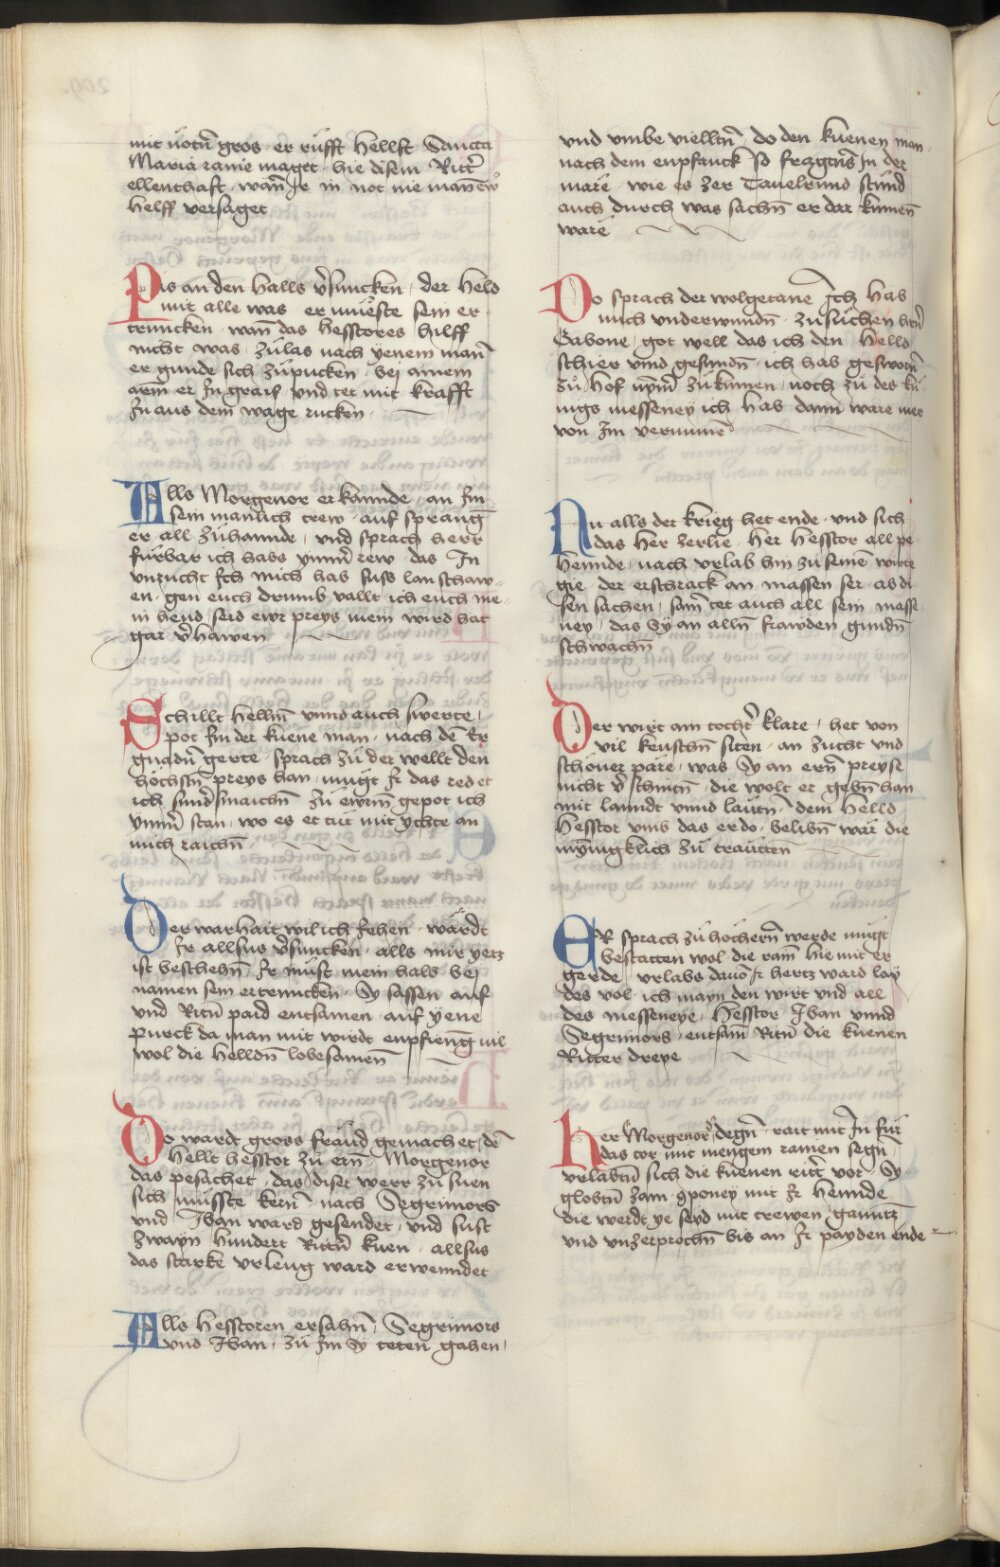 mit nötn̄ gros · er rüfft hellft Sancta
Maria raine maget · hie disem Ritt̄
ellenthaft · wan̄ Ir in not nie man ew̄
helff versaget
Pis an den halls v̄suncken · der held
mit alle was · er müeste sein er
truncken · wan̄ das hesstores hilff
nicht was · zulas nach yenem man̄
er gunde sich zůpucken · bej ainem
arm er In graif · und tet mit krafft
In aus dem wage rucken ·
Alls Morgenor erkannde · an Im
sein manlich trew · auf sprang
er all zühannde · vnd sprach herr
fürbar ich habs ymm̄ rew · das In
vnzucht Ich mich hab suss lan schaw
en · gen euch drumb vallt ich euch me
in hend seid ewr preys mein wird hat
gar v̄hawen
Schillt hellm̄ vnnd auch swerte ·
pot Im der küene man · nach dē Er
gnadn̄ gerte · sprach zu der wellt den
höchstn̄ preys han · mügt Ir das redet
ich sunnd̄ smaichn̄ zů ewrm̄ gepot ich
ymm̄ stan · wo es et tüt mit ychte an
mich raichn̄ ·
Der warhait wil ich Iehen · wärdt
Ir allsus v̄suncken · alls mir yetz
ist beschehn̄ · Ir müst mein halb bej
namen sein ertruncken · Sy sassen auf
vnd Ritn̄ paid entsamen · auf yene
purck da man mit wirdt enpfieng vil
wol die helldn̄ lobesamen̄
Do wardt gross fräud gemachet · dē
hellt hesstor zů ern̄ · Morgenor
das pesachet · das diser werr zu suen
sich müsste kern̄ · nach Segrimors
vnd Iban ward gesendet · vnd sust
zwayn hundert Rittn̄ kuen · allsus
das starke vrleug ward erwenndet
Alls hesstoren ersahn̄ · Segrimors
vnd Iban · zů Im Sy teten gahen ·
vnd vmbe vielltn̄ · do den kuenen man
nach dem enpfanck so fragtns̄ In der
märe · wie es zer Tauelrund stund
auch durch was sachn̄ er dar kumen̄
ware
Do sprach der wolgetane Ich hab
mich vnderwundn̄ · zu suchen hrn̄
Gabone · got well das ich den · helld
schier vnd gesundn̄ · ich hab gesworn̄
zů hof nym̄ zů kumen · noch zů des kü
nigs messeney ich hab dann ware mer
von Im vernumē
Nu alls der krieg het ende · vnd sich
das her zerlie · her hesstor all pe
hennde · nach vrlab hin zů seinē wirte
gie · der erschrack an massen ser · ab di
sen sachen · sam tet auch all sein masse
ney · das Sy an alln̄ frawden gundn̄
schwachn̄
Der wirt ain tocht̄ klare · het von
vil keuschn̄ siten · an zucht vnd
schoner päre · was Sy an ern̄ preyse
nicht v̄schnitn̄ · die wolt er gebn̄ han
mit lanndt vnnd läutn̄ · dem helld
hesstor vmb das er do · belibn̄ wär die
mynigklich zů trautten̄
ER sprach zů höchern̄ werde mügt
bestatten wol die rain̄ hie mit er
gerde · vrlabs dauō Ir hertz ward lay
des vol · ich mayn den wirt vnd all
des messeneye · Hesstor Iban vnnd
Segrimors · entsam̄ Ritn̄ die kuenen
Ritter dreye
Her Morgenor degn̄ · rait mit In für
das tor mit mengem rainen segn̄ ·
vrlabtn̄ sich die kuenen ritt̄ vor · Sy
globtn̄ zam 9poney mit Ir hennde
die werdt ye seyd mit trewen gannntz
vnd vnzerprochn̄ bis an Ir payden ende